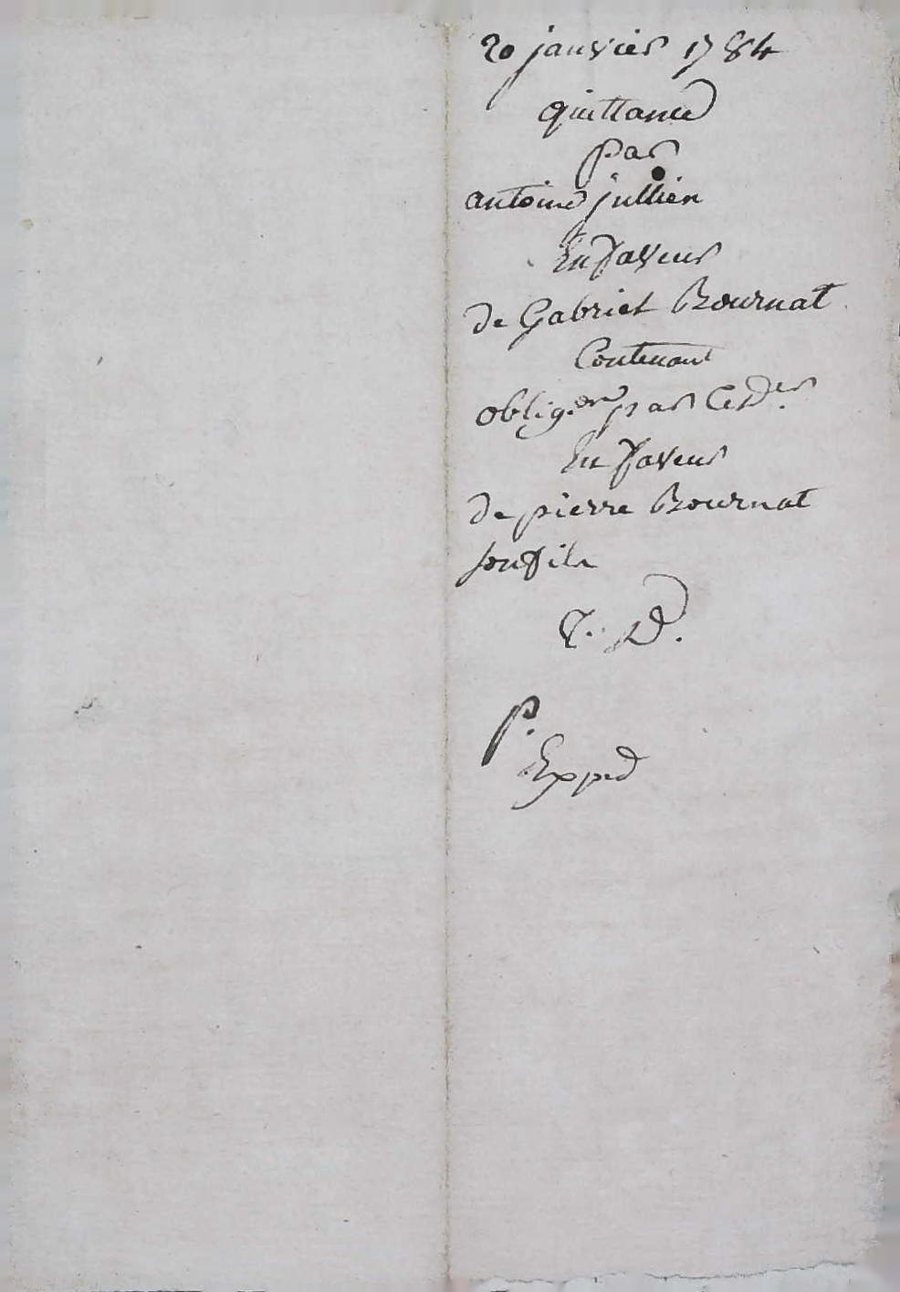 20 janvier 1784
quittance
par
antoine jullien
En faveur
de Gabriel Bournat
Contenant
oblig.on par Ced.er
En faveur
de pierre Bournat
son fils
p.
Exped